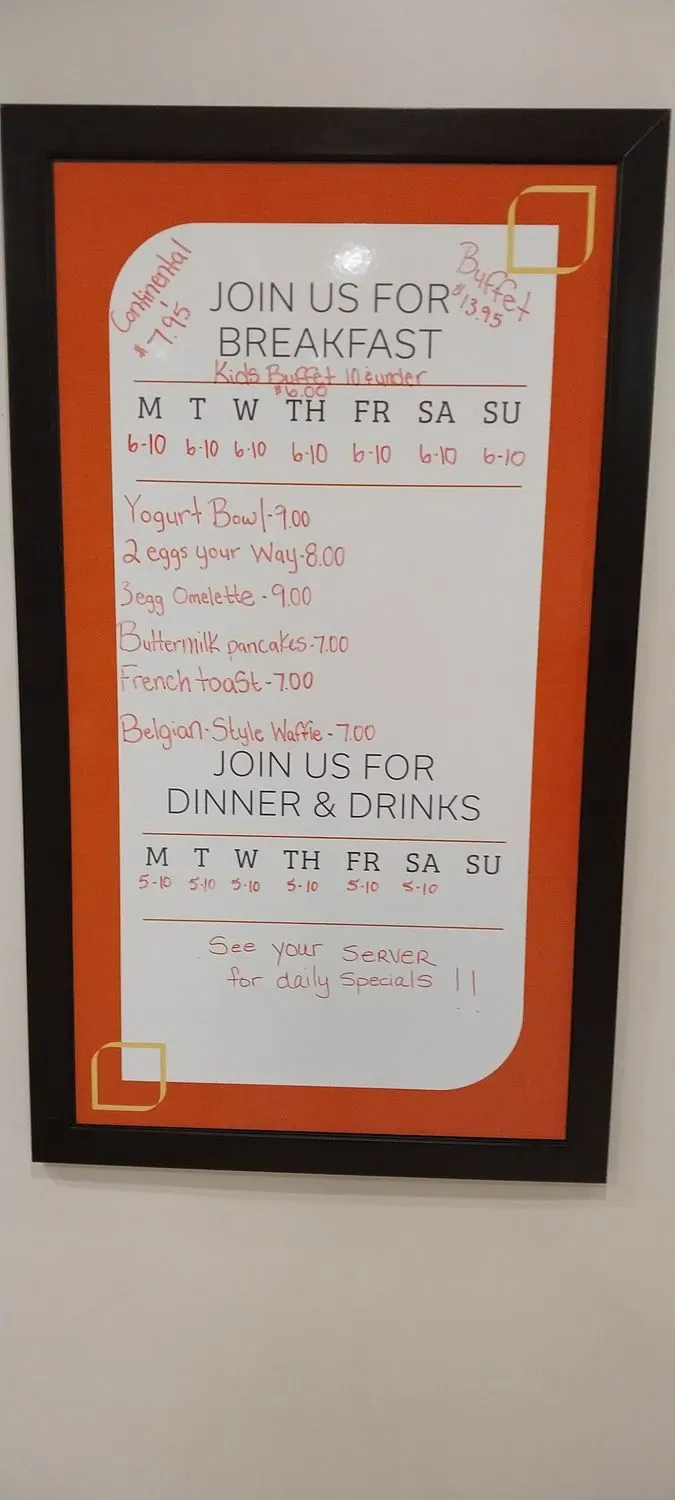 Continental
$7.95
Buffet
$13.95
JOIN US FOR
BREAKFAST
Kids Buffet 10 & under
$6.00
M T W TH FR SA SU
6-10 6-10 6-10 6-10 6-10 6-10 6-10
Yogurt Bowl-9.00
2 eggs your Way-8.00
3egg Omelette - 9.00
Buttermilk pancakes-7.00
French toaSt-7.00
Belgian-Style Waffle - 7.00
JOIN US FOR
DINNER & DRINKS
M T W TH FR SA SU
5-10 5-10 5-10 5-10 5-10 5-10
See your SERVER
for daily Specials !!